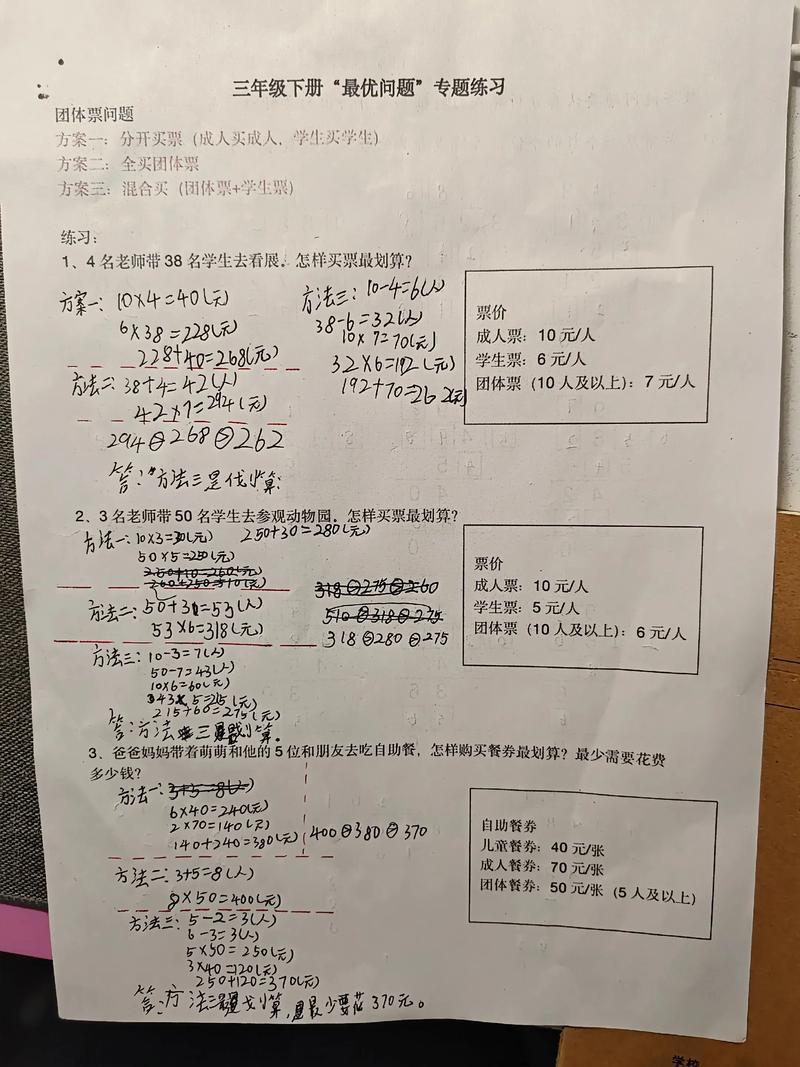 三年级下册“最优问题”专题练习
团体票问题
方案一：分开买票（成人买成人，学生买学生）
方案二：全买团体票
方案三：混合买（团体票+学生票）
练习：
1、4名老师带38名学生去看展。怎样买票最划算？
方案一：10×4=40(元)
6×38=228(元)
228+40=268(元)
方法二：38+4=42(人)
42×7=294(元)
294>268>262
方法三：10-4=6(人)
38-6=32(人)
10×7=70(元)
32×6=192(元)
192+70=262(元)
答：方法三是代划算
票价
成人票：10元/人
学生票：6元/人
团体票（10人及以上）：7元/人
2、3名老师带50名学生去参观动物园。怎样买票最划算？
方法一：10×3=30(元) 250+30=280(元)
50×5=250(元)
250+10=260(元)
260+250=510(元)
方法二：50+3=53(人)
53×6=318(元)
318>275>260
510>318>275
318>280>275
方法三：10-3=7(人)
50-7=43(人)
10×6=60(元)
43×5=215(元)
215+60=275(元)
答：方法三最划算。
票价
成人票：10元/人
学生票：5元/人
团体票（10人及以上）：6元/人
3、爸爸妈妈带着萌萌和他的5位和朋友去吃自助餐，怎样购买餐券最划算？最少需要花费
多少钱？
方法一：3+5=8(人)
6×40=240(元)
2×70=140(元)
140+240=380(元)
400>380>370
方法二：3+5=8(人)
8×50=400(元)
方法三：5-2=3(人)
6-3=3(人)
5×50=250(元)
3×40=120(元)
250+120=370(元)
答：方法三最划算，最少要花370元。
自助餐券
儿童餐券：40元/张
成人餐券：70元/张
团体餐券：50元/张（5人及以上）
学校